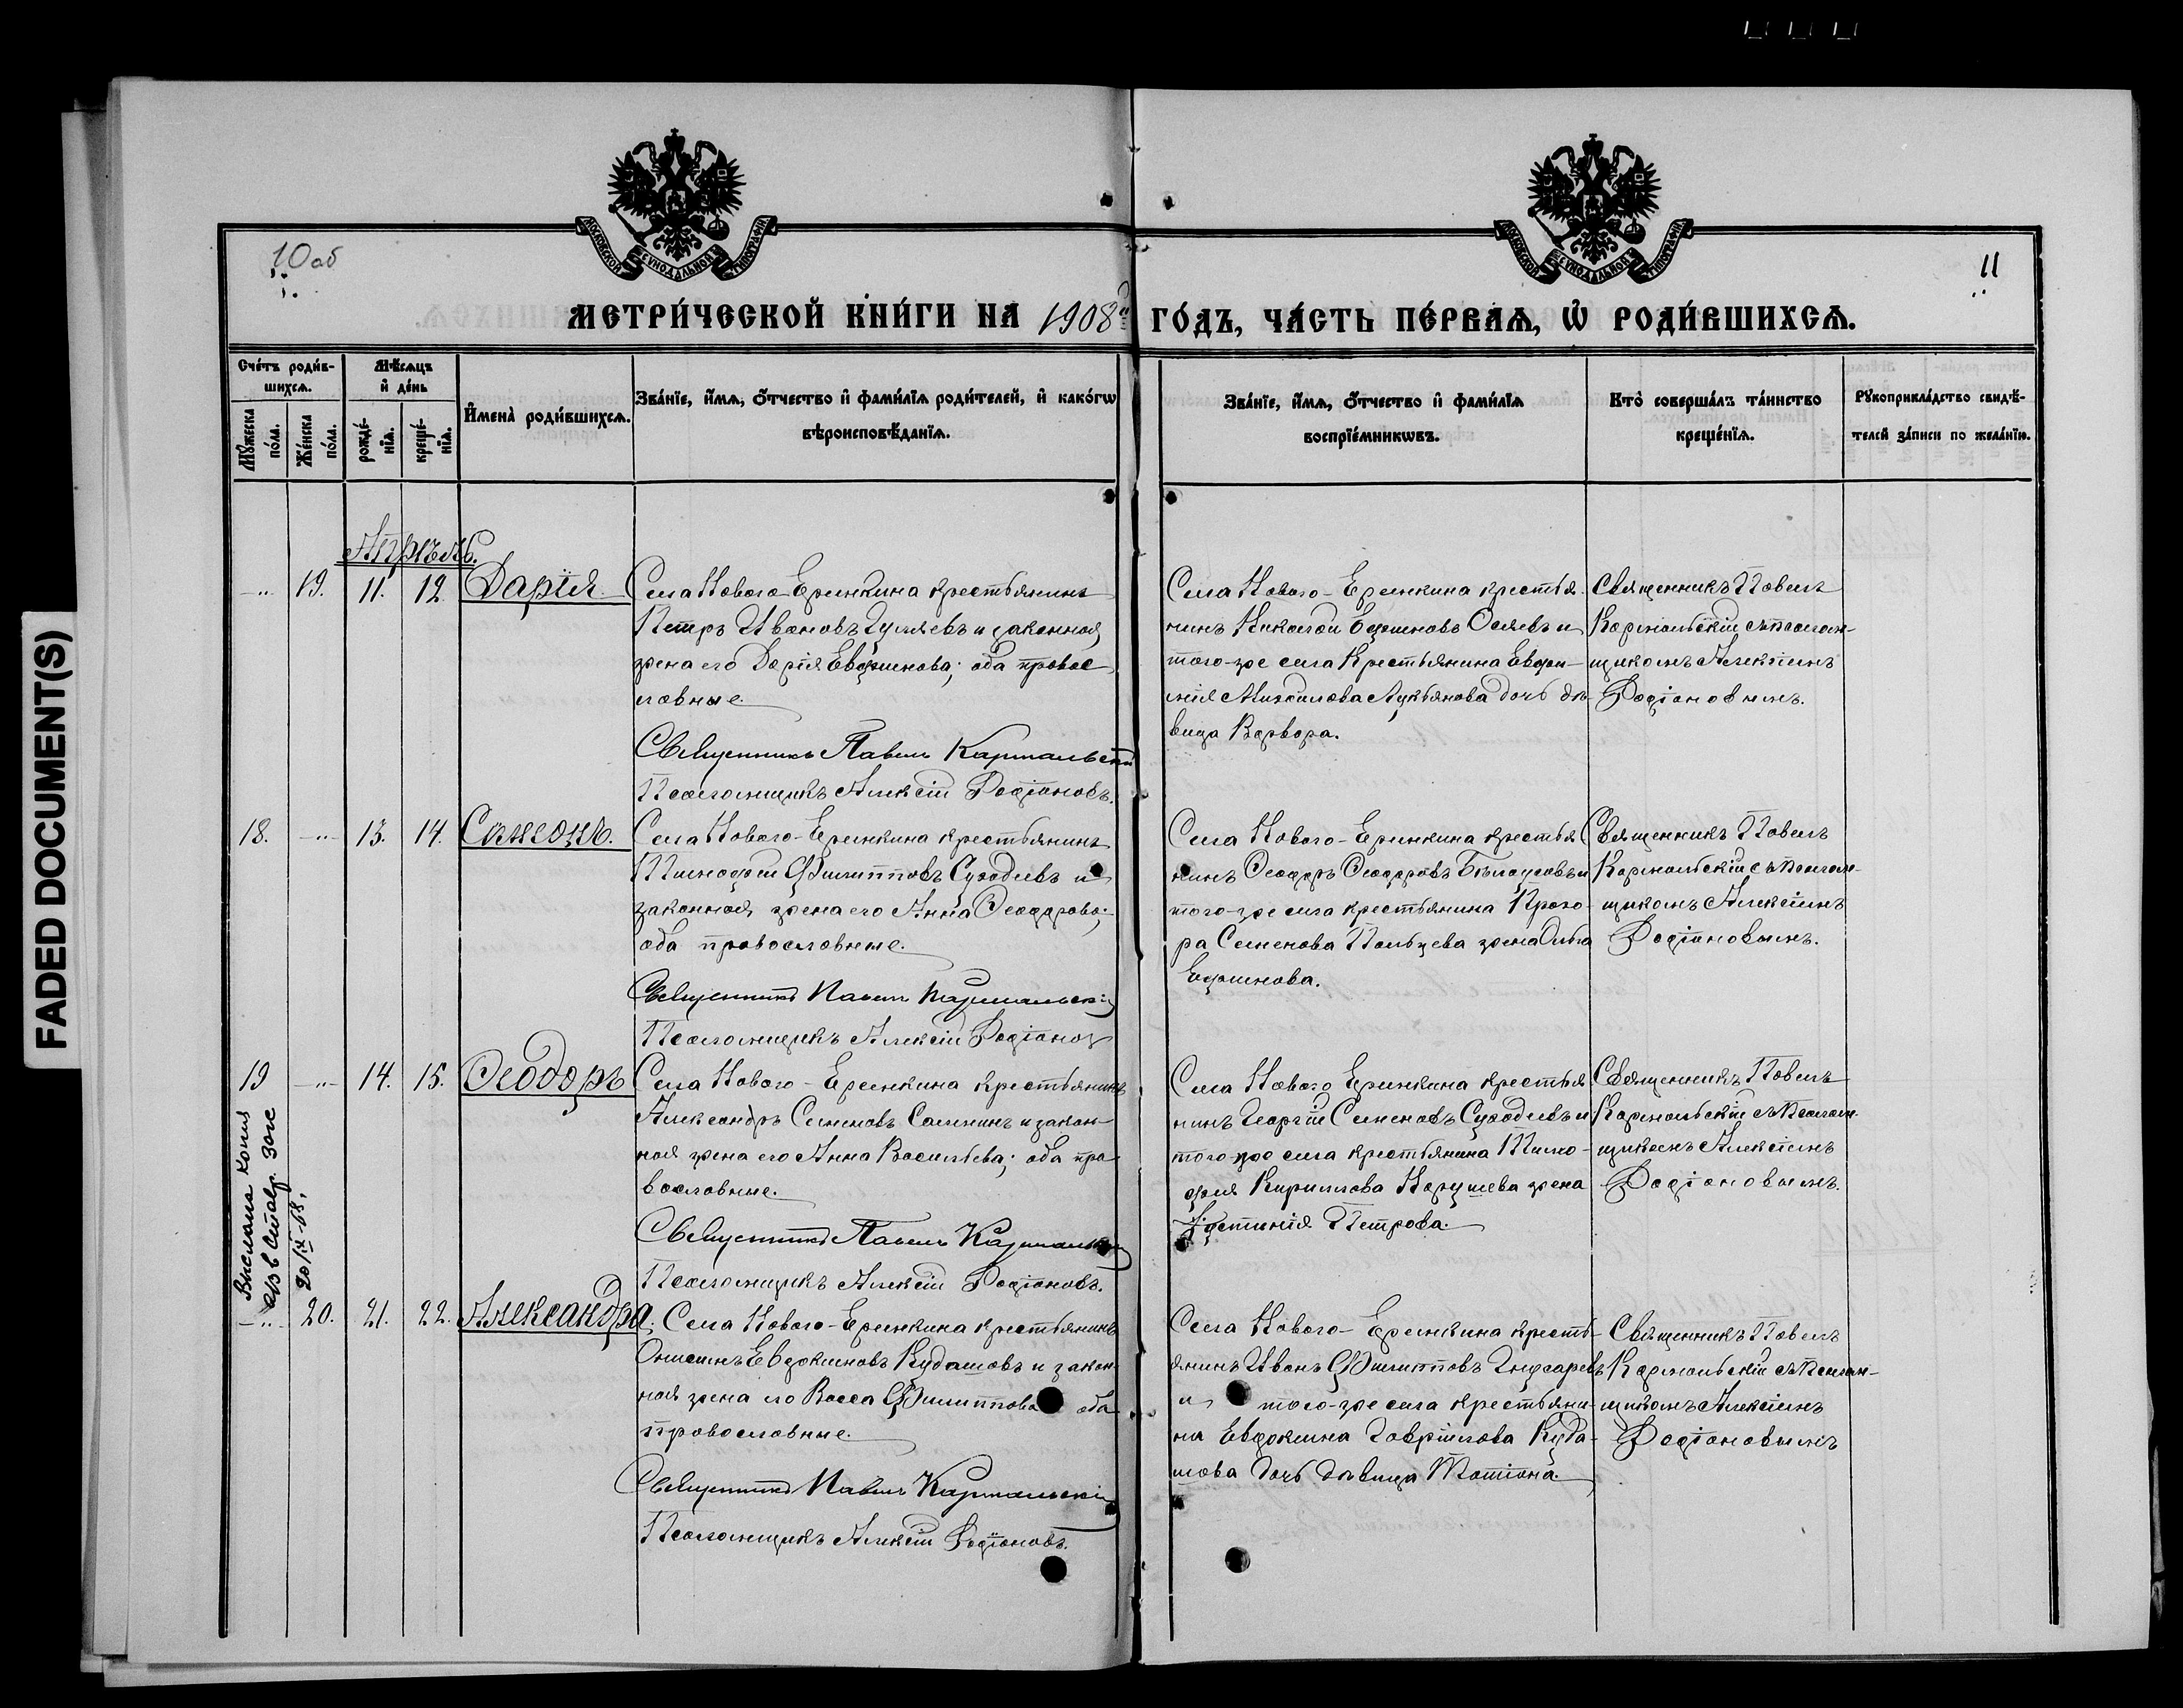 FADED DOCUMENT(S)
МОСКОВСКОЙ СѴНОДАЛЬНОЙ ТИПОГРАФІИ
МОСКОВСКОЙ СѴНОДАЛЬНОЙ ТИПОГРАФІИ
10 об
11
МЕТРИ́ЧЕСКОЙ КНИ́ГИ НА 1908 ГО́ДЪ, ЧА́СТЬ ПЕ́РВАѦ, Ѡ҆ РОДИ́ВШИХСѦ.
Сче́тъ роди́в-
шихсѧ.
Мꙋ́жеска по́ла.
Же́нска по́ла.
Мѣ́сѧцъ
и҆ де́нь
рожде́-
нїѧ.
креще́-
нїѧ.
И҆мена̀ роди́вшихсѧ.
Зва́нїе, и҆́мѧ, ѻ҆́тчество и҆ фами́лїѧ роди́телей, и҆ како́гѡ
вѣроисповѣ́данїѧ.
Зва́нїе, и҆́мѧ, ѻ҆́тчество и҆ фами́лїѧ
воспрїе́мникѡвъ.
Кто̀ соверша́лъ та́инство
креще́нїѧ.
Рꙋкоприкла́дство свидѣ́-
телей за́писи по жела́нїю.
Апрѣль.
19. 11. 12. Дарія.
Села Новаго-Еремкина крестьянинъ
Петръ Ивановъ Гуляевъ и законная
жена его Дарія Евфимова; оба правос
лавные.
Священникъ Павелъ Кармальскій
Псаломщикъ Алексій Родіоновъ.
Села Новаго-Еремкина крестья
нинъ Николай Ефимовъ Осяевъ и
того-же села Крестьянина Евфи-
мія Михайлова Лукьянова дочь дѣ-
вица Варвара.
Священникъ Павелъ
Кармальскій съ псалом-
щикомъ Алексіемъ
Родіоновымъ.
18. 13. 14. Симеонъ.
Села Новаго-Еремкина крестьянинъ
Тимофей Филипповъ Суходѣевъ и
законная жена его Анна Ѳеодорова;
оба православные.
Священникъ Павелъ Кармальскій
Псаломщикъ Алексій Родіоновъ
Села Новаго-Еремкина крестья
нинъ Ѳеодоръ Ѳеодоровъ Бѣлоусовъ и
того-же села крестьянина Прохо-
ра Семенова Пальцева жена Ольга
Ефимова.
Священникъ Павелъ
Кармальскій съ псалом-
щикомъ Алексіемъ
Родіоновымъ.
19 14. 15. Ѳеодоръ
Села Новаго-Еремкина крестьянинъ
Александръ Семеновъ Саминъ и закон-
ная жена его Анна Васильева; оба пра
вославные.
Священникъ Павелъ Кармальскій
Псаломщикъ Алексій Родіоновъ.
Села Новаго Еремкина крестья
нинъ Георгій Семеновъ Суходѣевъ и
того-же села крестьянина Тимо-
фея Кириллова Карушева жена
Устинія Петрова.
Священникъ Павелъ
Кармальскій съ псалом-
щикомъ Алексіемъ
Родіоновымъ.
Выслана копия
а/з в Ставр. Загс
20/IX-68.
20. 21. 22. Александра.
Села Новаго-Еремкина крестьянинъ
Онисимъ Евдокимовъ Кудашовъ и закон
ная жена его Васса Филиппова оба
православные.
Священникъ Павелъ Кармальскій
Псаломщикъ Алексій Родіоновъ.
Села Новаго-Еремкина кресть-
янинъ Иванъ Филипповъ
и того-же села крестьяни-
на Евдокима Гавріилова Куда-
шова дочь дѣвица Татіана.
Священникъ Павелъ
Кармальскій съ псалом-
щикомъ Алексіемъ
Родіоновымъ